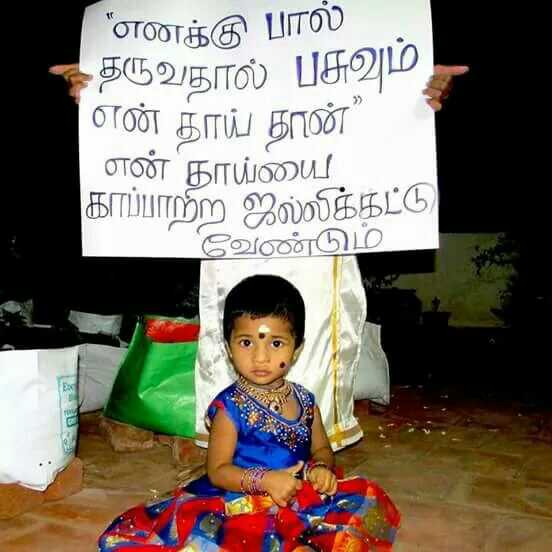 "எனக்கு பால்
தருவதால் பசுவும்
என் தாய் தான்"
என் தாய்யை
காப்பாற்ற ஜல்லிக்கட்டு
வேண்டும்